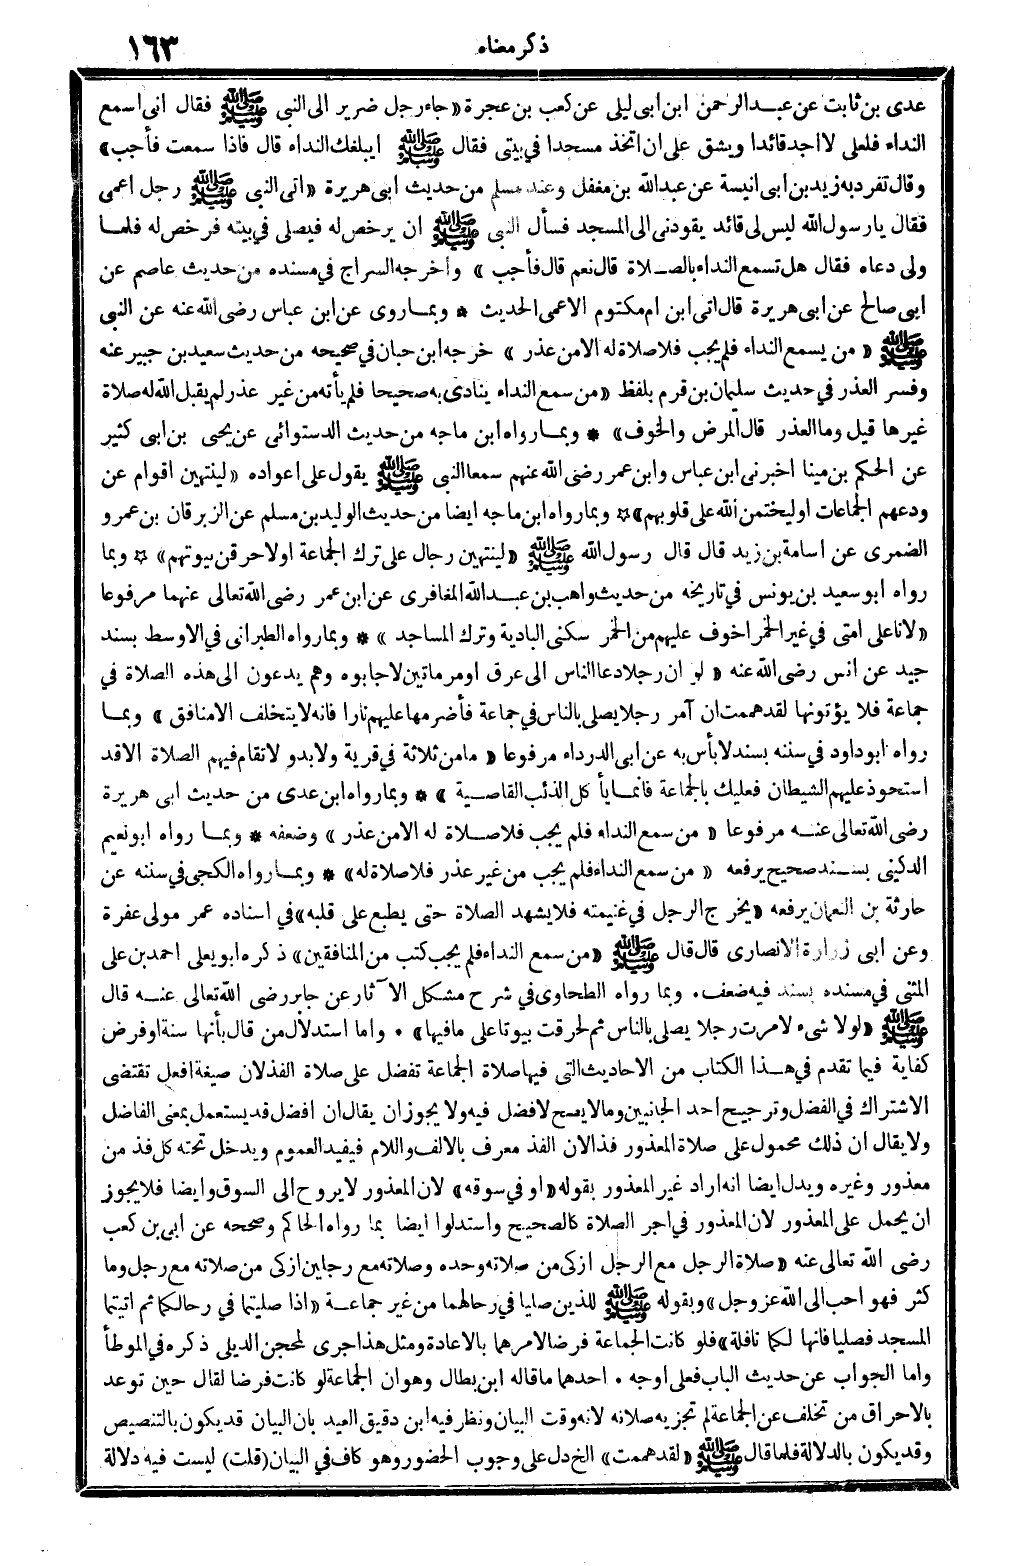 ذكر معناه ١٦٣
عدى بن ثابت عن عبد الرحمن ابن ابى ليلى عن كعب بن عجرة «جاء رجل ضرير الى النبى ﷺ فقال انى اسمع
النداء فلعلى لا اجد قائدا ويشق على ان اتخذ مسجدا فى بيتى فقال ﷺ ايبلغك النداء قال فاذا سمعت فأجب»
وقال تفرد به زيد بن ابى انيسة عن عبد الله بن مغفل وعند مسلم من حديث ابى هريرة «اتى النبى ﷺ رجل اعمى
فقال يا رسول الله ليس لى قائد يقودنى الى المسجد فسأل النبى ﷺ ان يرخص له فيصلى فى بيته فرخص له فلما
ولى دعاه فقال هل تسمع النداء بالصلاة قال نعم قال فأجب» واخرجه السراج فى مسنده من حديث عاصم عن
ابى صالح عن ابى هريرة قال اتى ابن ام مكتوم الاعمى الحديث * وبما روى عن ابن عباس رضى الله عنه عن النبى
ﷺ «من يسمع النداء فلم يجب فلا صلاة له الا من عذر» خرجه ابن حبان فى صحيحه من حديث سعيد بن جبير عنه
وفسر العذر فى حديث سليمان بن قرم بلفظ «من سمع النداء ينادى به صحيحا فلم يأته من غير عذر لم يقبل الله له صلاة
غيرها قيل وما العذر قال المرض والخوف» * وبما رواه ابن ماجه من حديث الدستوائى عن يحيى بن ابى كثير
عن الحكم بن مينا اخبرنى ابن عباس وابن عمر رضى الله عنهم سمعا النبى ﷺ يقول على اعواده «لينتهين اقوام عن
ودعهم الجماعات او ليختمن الله على قلوبهم» ☆ وبما رواه ابن ماجه ايضا من حديث الوليد بن مسلم عن الزبرقان بن عمرو
الضمرى عن اسامة بن زيد قال قال رسول الله ﷺ «لينتهين رجال على ترك الجماعة او لاحرقن بيوتهم» ☆ وبما
رواه ابو سعيد بن يونس فى تاريخه من حديث واهب بن عبد الله المغافرى عن ابن عمر رضى الله تعالى عنهما مرفوعا
«لانا على امتى فى غير الخمر اخوف عليهم من الخمر سكنى البادية وترك المساجد» * وبما رواه الطبرانى فى الاوسط بسند
جيد عن انس رضى الله عنه «لو ان رجلا دعا الناس الى عرق او مرماتين لاجابوه وهم يدعون الى هذه الصلاة فى
جماعة فلا يؤتونها لقد هممت ان آمر رجلا يصلى بالناس فى جماعة فأضرمها عليهم نارا فانه لا يتخلف الا منافق» وبما
رواه ابو داود فى سننه بسند لا بأس به عن ابى الدرداء مرفوعا «ما من ثلاثة فى قرية ولا بدو لا تقام فيهم الصلاة الا قد
استحوذ عليهم الشيطان فعليك بالجماعة فانما يأكل الذئب القاصية» * وبما رواه ابن عدى من حديث ابى هريرة
رضى الله تعالى عنه مرفوعا «من سمع النداء فلم يجب فلا صلاة له الا من عذر» وضعفه * وبما رواه ابو نعيم
الدكينى بسند صحيح يرفعه «من سمع النداء فلم يجب من غير عذر فلا صلاة له» * وبما رواه الكجى فى سننه عن
حارثة بن النعمان يرفعه «يخرج الرجل فى غنيمته فلا يشهد الصلاة حتى يطبع على قلبه» فى اسناده عمر مولى عفرة
وعن ابى زرارة الانصارى قال قال ﷺ «من سمع النداء فلم يجب كتب من المنافقين» ذكره ابو يعلى احمد بن على
المثنى فى مسنده بسند فيه ضعف. وبما رواه الطحاوى فى شرح مشكل الآثار عن جابر رضى الله تعالى عنه قال
ﷺ «لولا شىء لامرت رجلا يصلى بالناس ثم لحرقت بيوتا على ما فيها» . واما استدلال من قال بأنها سنة او فرض
كفاية فيما تقدم فى هذا الكتاب من الاحاديث التى فيها صلاة الجماعة تفضل على صلاة الفذ لان صيغة افعل تقتضى
الاشتراك فى الفضل وترجيح احد الجانبين وما لا يصح لا فضل فيه ولا يجوز ان يقال ان افضل قد يستعمل بمعنى الفاضل
ولا يقال ان ذلك محمول على صلاة المعذور فذا لان الفذ معرف بالالف واللام فيفيد العموم ويدخل تحته كل فذ من
معذور وغيره ويدل ايضا انه اراد غير المعذور بقوله «او فى سوقه» لان المعذور لا يروح الى السوق وايضا فلا يجوز
ان يحمل على المعذور لان المعذور فى اجر الصلاة كالصحيح واستدلوا ايضا بما رواه الحاكم وصححه عن ابى بن كعب
رضى الله تعالى عنه «صلاة الرجل مع الرجل ازكى من صلاته وحده وصلاته مع رجلين ازكى من صلاته مع رجل وما
كثر فهو احب الى الله عز وجل» وبقوله ﷺ للذين صليا فى رحالهما من غير جماعة «اذا صليتما فى رحالكما ثم اتيتما
المسجد فصليا فانها لكما نافلة» فلو كانت الجماعة فرضا لامرهما بالاعادة ومثل هذا جرى لمحجن الديلى ذكره فى الموطأ
واما الجواب عن حديث الباب فعلى اوجه . احدها ما قاله ابن بطال وهو ان الجماعة لو كانت فرضا لقال حين توعد
بالاحراق من تخلف عن الجماعة لم تجزيه صلاته لانه وقت البيان ونظر فيه ابن دقيق العيد بان البيان قد يكون بالتنصيص
وقد يكون بالدلالة فلما قال ﷺ «لقد هممت» الخ دل على وجوب الحضور وهو كاف فى البيان (قلت) ليست فيه دلالة